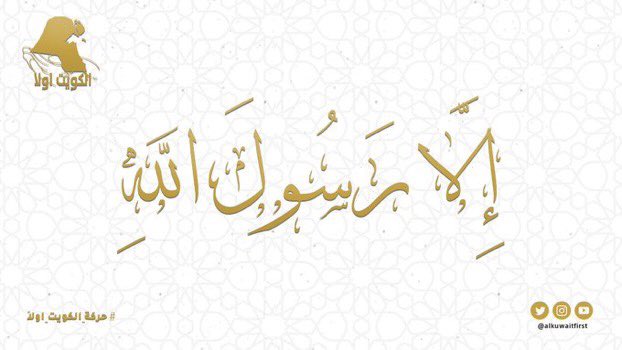 الكويت اولا
إِلَّا رَسُولَ اللَّهِ
#حركة_الكويت_اولا
@alkuwaitfirst